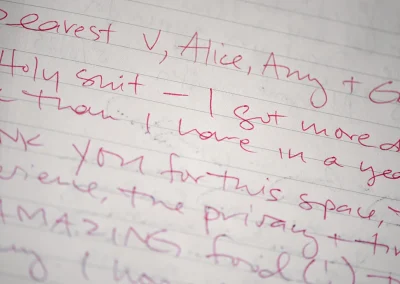 Dearest V, Alice, Amy + G
Holy shit – I got more d
than I have in a yea
nk you for this space,
erience, the privacy + tim
AMAZING food (!) +
I hav